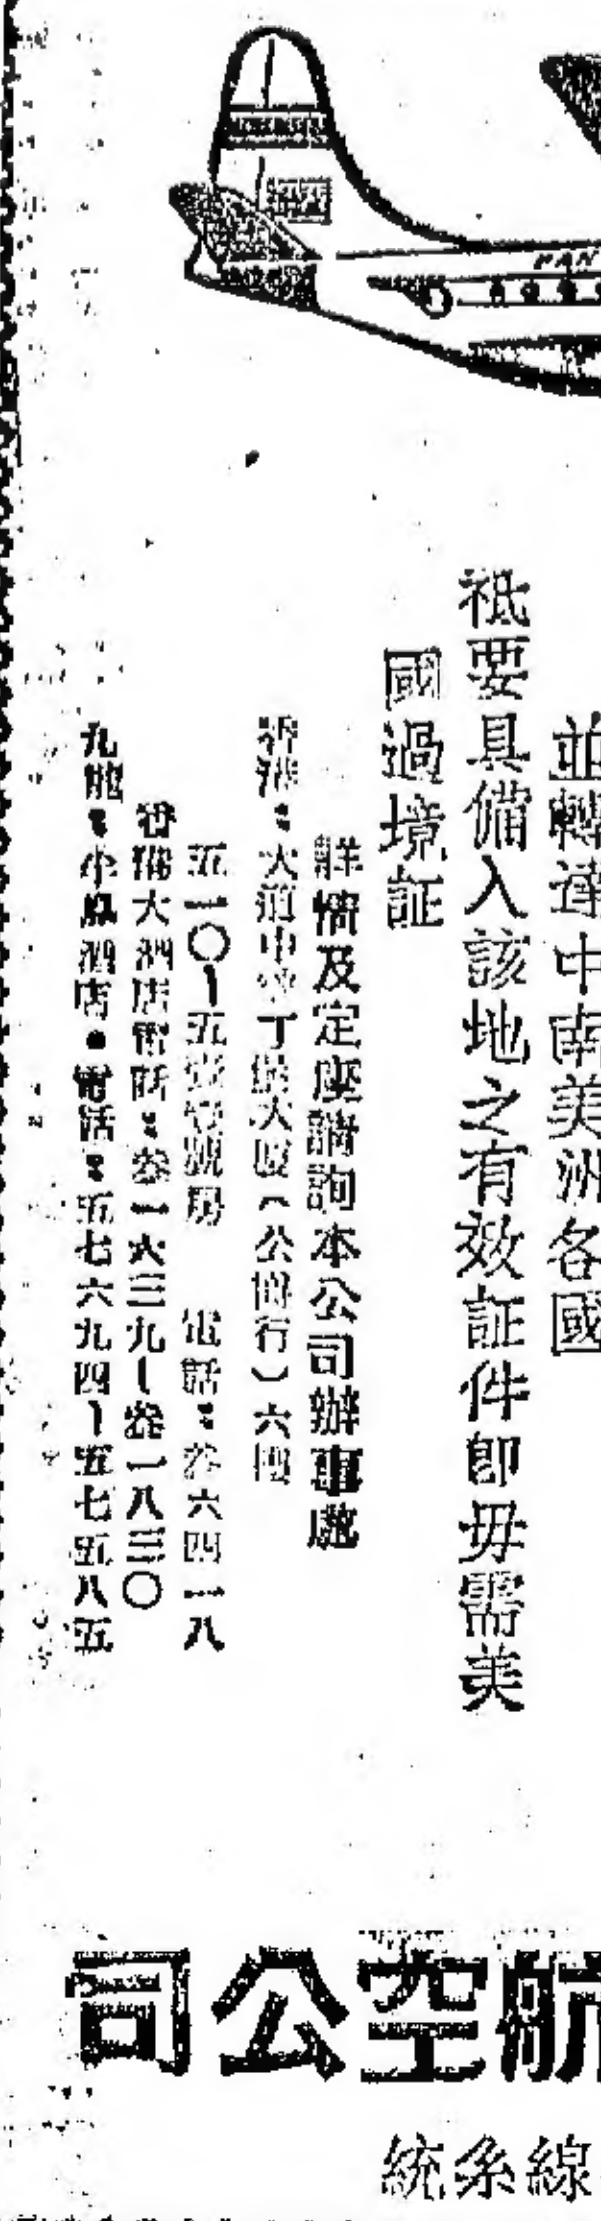 PAN
並轉達中南美洲各國
祗要具備入該地之有效証件卽毋需美
國過境証
詳情及定座請詢本公司辦事處
香港：大道中 丁 大廈（公 行）六
五一〇—五 號房 電話：叁六四一八
香 大酒店電話：叁一六三九—叁一八三〇
九龍：半島酒店・電話：五七六九四—五七五八五
航空公司
線系統